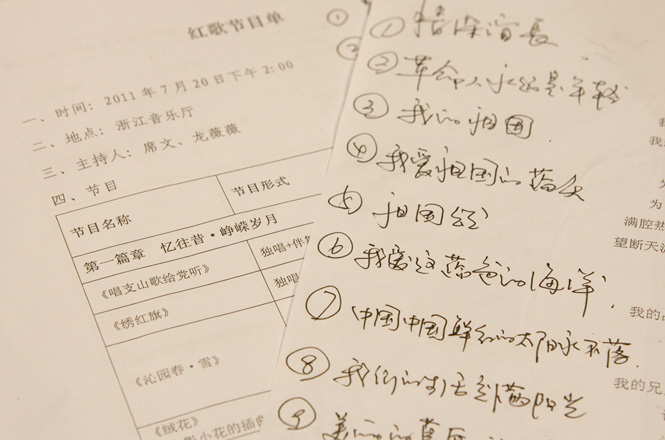 红歌节目单
一、时间：2011年7月20日下午2：00
二、地点：浙江音乐厅
三、主持人：席文、龙薇薇
四、节目
节目名称 节目形式
第一篇章 忆往昔·峥嵘岁月
《唱支山歌给党听》 独唱+伴
《绣红旗》 独唱
《沁园春·雪》
《绒花》
影小花的插曲
①
②
① 情深谊长
② 革命人永远是年轻
③ 我的祖国
④ 我爱祖国的蓝天
⑤ 祖国颂
⑥ 我爱这蓝色的海洋.
⑦ 中国中国鲜红的太阳永不落
⑧ 我们的生活充满阳光
⑨
我
我
为
为
满腔热
望断天涯
我的
我的兄